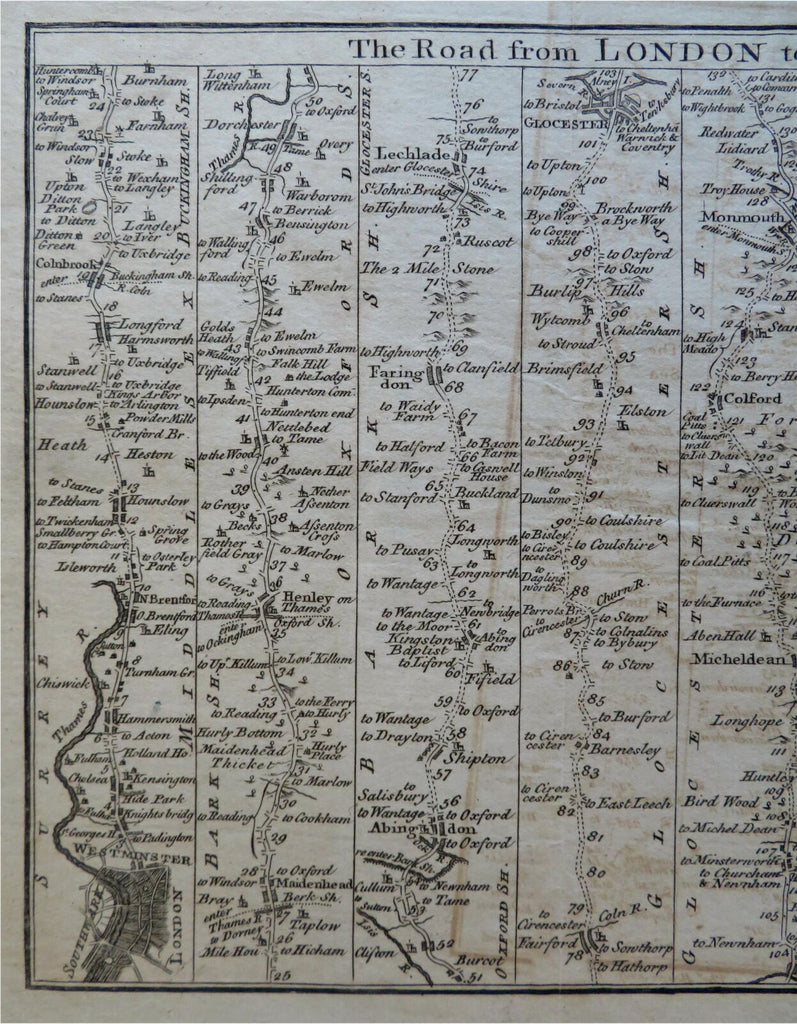 The Road from LONDON to
Huntercomb
to Windsor
Burnham
Springham
Court
24
to Stoke
Chalvey
Grun
Farnham
23
to Windsor
Slow
Stoke
22
to Wexham
to Langley
Upton
Ditton
Park
21
to Ditton
Langley
Ditton
Green
20
to Iver
to Uxbridge
Colnbrook
19
Buckingham Sh.
enter
R. Coln
to Stanes
18
Longford
Harmsworth
17
to Uxbridge
Stanwell
16
to Stanwell
to Uxbridge
Kings Arbor
Hounslow
to Arlington
15
Powder Mills
Cranford Br.
Heath
14
Heston
to Stanes
13
to Feltham
Hounslow
to Twickenham
12
Smallberry Gr.
Spring
Grove
to Hampton Court
11
to Osterley
Park
Isleworth
10
N. Brentford
O. Brentford
9
Eling
Sutton
8
Turnham Gr.
Chiswick
7
Thames R.
Hammersmith
6
to Acton
Holland Ho.
Fulham
5
Chelsea
Kensington
Hide Park
4
Knightsbridg
St. Georges H.
to Padington
WESTMINSTER
SOUTHWARK
LONDON
SURREY
MIDDLESEX
BUCKINGHAM SH.
Long
Wittenham
50
to Oxford
Dorchester
Thames R.
49
Tame
Overy
48
Shilling
ford
Warborom
47
to Berrick
Bensington
46
to Walling
ford
to Ewelm
to Reading
45
Ewelm
44
Golds
Heath
to Ewelm
43
to Swincomb Farm
to Walling
Falk Hill
Tiffield
the Lodge
42
Hunterton Com.
to Ipsden
to Hunterton end
41
Nettlebed
to Tame
to the Wood
40
Ansten Hill
39
Nether
Assenton
to Grays
38
Becks
Assenton
Cross
Rother
field Gray
to Marlow
37
to Grays
36
to Reading
Henley on
Thames
Thames R.
Oxford Sh.
enter
35
to Ockingham
to Upr. Killum
to Lowr. Killum
34
33
to the Ferry
to Reading
to Hurly
Hurly Bottom
32
Maidenhead
Thicket
Hurly
Place
31
to Marlow
30
to Reading
to Cookham
29
28
to Oxford
to Windsor
Maidenhead
Bray
Berk Sh.
enter
27
Thames R.
Taplow
to Dorney
26
Mile Hou
to Hicham
25
BARK SH.
OXFORD S.
GLOCESTER S.
77
76
to
Sowthorp
75
Burford
Lechlade
enter Glocester
74
Shire
St. John's Bridge
Isis R.
to Highworth
73
Ruscot
72
The 2 Mile Stone
71
70
to Highworth
69
to Clanfield
Faring
don
68
to Waidy
Farm
67
to Halford
to Bacon
Farm
66
Field Ways
to Caswell
House
65
to Stanford
Buckland
64
Longworth
to Pusay
63
to
Longworth
to Wantage
62
to
Newbridge
to Wantage
to the Moor
61
Kingston
Baptist
to
Abing
don
to Liford
60
Fifield
59
to Oxford
to Wantage
to Drayton
58
Shipton
57
to
Salisbury
56
to Wantage
to Oxford
Abing don
to Oxford
re enter Bark Sh.
54
Cullum
to Newnham
to Tame
to Sutton
53
Isis R.
52
Clifton
Burcot
51
BARK SH.
OXFORD SH.
103
Severn R.
Alney I.
to Bristol
to Tewkesbury
GLOCESTER
to Cheltenha
Warnick &
Coventry
101
to Upton
100
to Upton
99
Brockworth
Bye Way
a Bye Way
to Cooper
shill
98
to Oxford
to Stow
97
Burlip Hills
96
Wytcomb
to
Cheltenham
to Stroud
95
Brimsfield
94
Elston
93
to Tetbury
92
to Winston
to
Dunsmo
91
90
to Coulshire
to Bisley
to Ciren
cester
to Coulshire
89
to
Dagling
worth
88
Churn R.
Perrots Br.
to
Cirencester
to Stow
87
to Colnalins
to Bybury
86
to Stow
85
to Burford
84
to Ciren
cester
Barnesley
83
to Ciren
cester
82
to East Leech
81
80
79
Coln R.
to
Cirencester
Fairford
to Sowthorp
78
to Hathorp
GLOCESTER SH.
132
to Penalth
131
to Wightbrook
130
Redwater
Lidiard
Trothy R.
Troy House
128
Monmouth
enter Monmouth S.
125
124
to High
Meado
123
to Berry H
122
Colford
Coal
Pitts
121
to Cluerwall
to Lit. Dean
120
119
to Cluerswall
118
117
to Coal Pitts
116
to the Furnace
Aben Hall
Micheldean
113
Longhope
111
Huntley
109
Bird Wood
108
to Michel Dean
107
to Minsterworth
to Churcham
& Newnham
105
to Newnham
104
GLOCESTER SH.